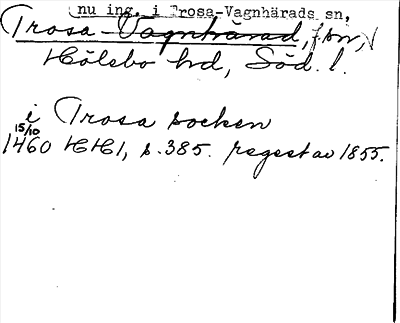 (nu ing. i Trosa-Vagnhärads sn,
Trosa-Vagnhärad, f. sn,
Hölebo hd, Söd. l.
i Trosa socken
15/10
1460 HH1, s. 385. regest av 1855.